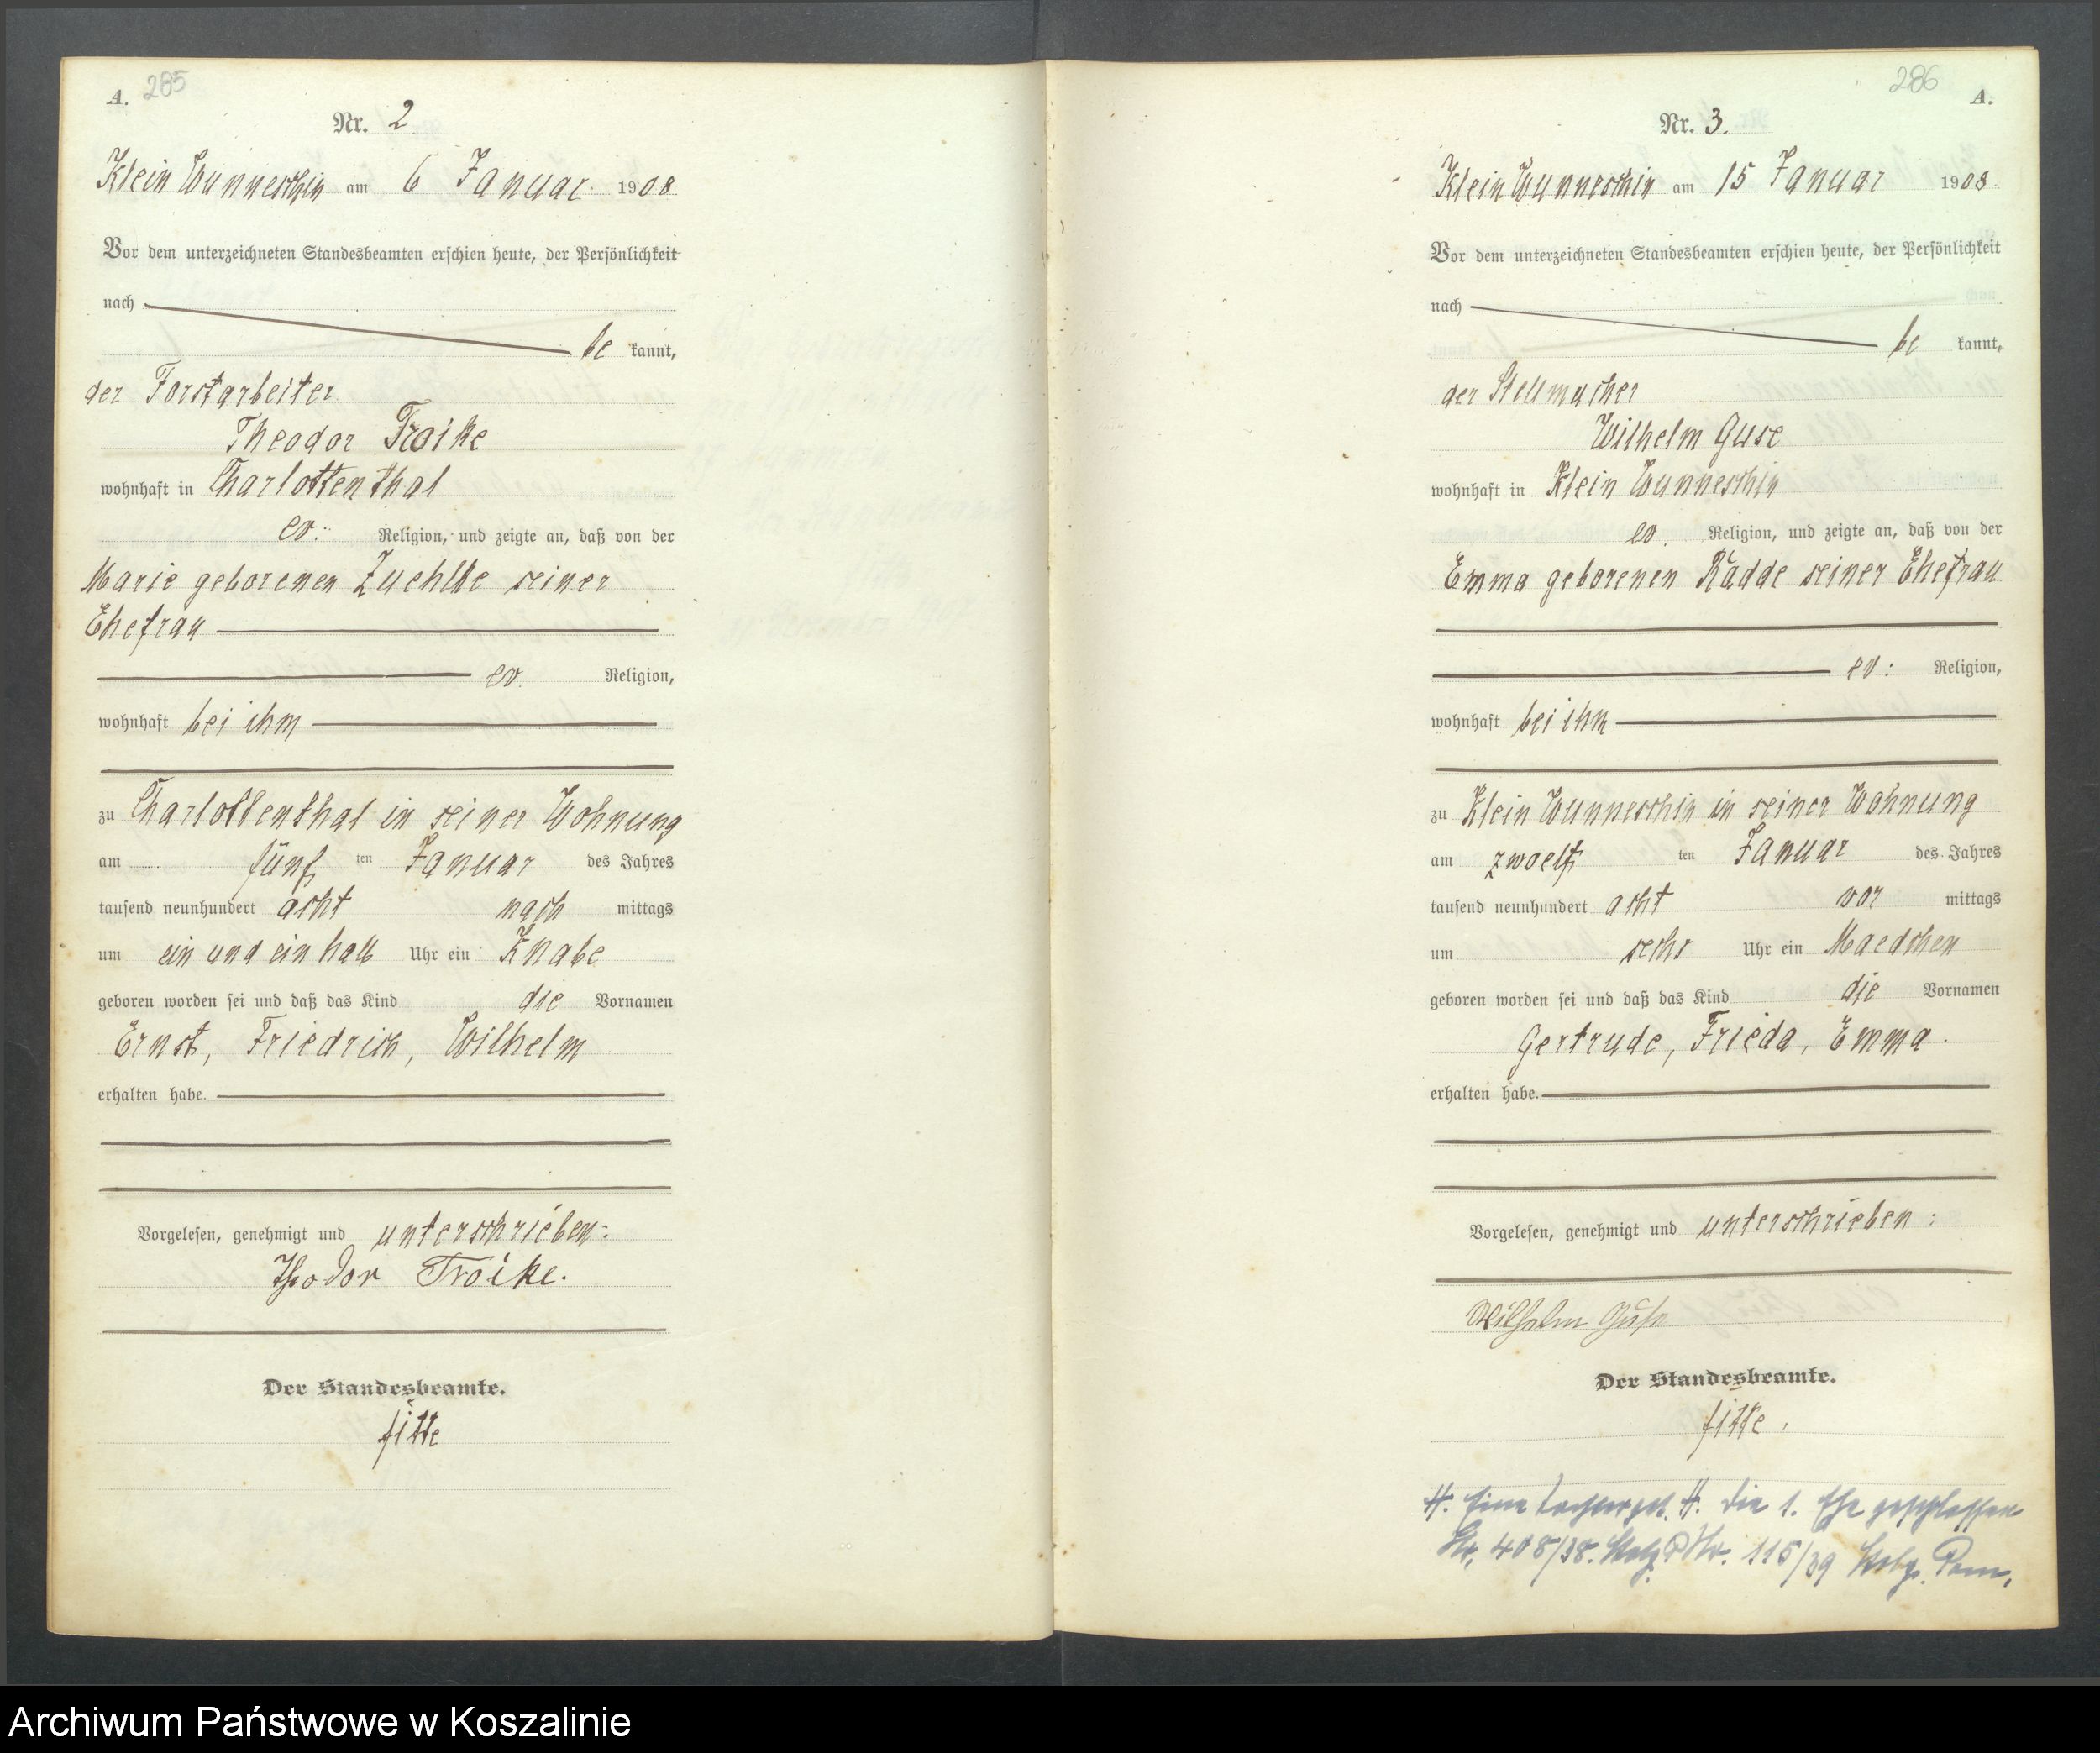 A. 285
Nr. 2
Klein Wunneschin am 6 Januar 1908
Vor dem unterzeichneten Standesbeamten erschien heute, der Persönlichkeit
nach
be kannt,
der Forstarbeiter
Theodor Troike
wohnhaft in Charlottenthal
ev. Religion, und zeigte an, daß von der
Marie geborenen Zuehlke seiner
Ehefrau
ev. Religion,
wohnhaft bei ihm
zu Charlottenthal in seiner Wohnung
am fünf ten Januar des Jahres
tausend neunhundert acht nach mittags
um ein und ein halb Uhr ein Knabe
geboren worden sei und daß das Kind die Vornamen
Ernst, Friedrich, Wilhelm
erhalten habe.
Vorgelesen, genehmigt und unterschrieben:
Theodor Troike.
Der Standesbeamte.
fitte
286 A.
Nr. 3.
Klein Wunneschin am 15 Januar 1908
Vor dem unterzeichneten Standesbeamten erschien heute, der Persönlichkeit
nach
be kannt,
der Stellmacher
Wilhelm Guse
wohnhaft in Klein Wunneschin
ev. Religion, und zeigte an, daß von der
Emma geborenen Radde seiner Ehefrau
ev: Religion,
wohnhaft bei ihm
zu Klein Wunneschin in seiner Wohnung
am zwoelf ten Januar des Jahres
tausend neunhundert acht vor mittags
um sechs Uhr ein Maedchen
geboren worden sei und daß das Kind die Vornamen
Gertrude, Frieda, Emma.
erhalten habe.
Vorgelesen, genehmigt und unterschrieben:
Wilhelm Guse
Der Standesbeamte.
fitte.
H. Eine Tochter geb. H. die 1. Ehe geschlossen
Nr. 408/38. Stolp Nr. 115/39 Stolp. Pom.
Archiwum Państwowe w Koszalinie